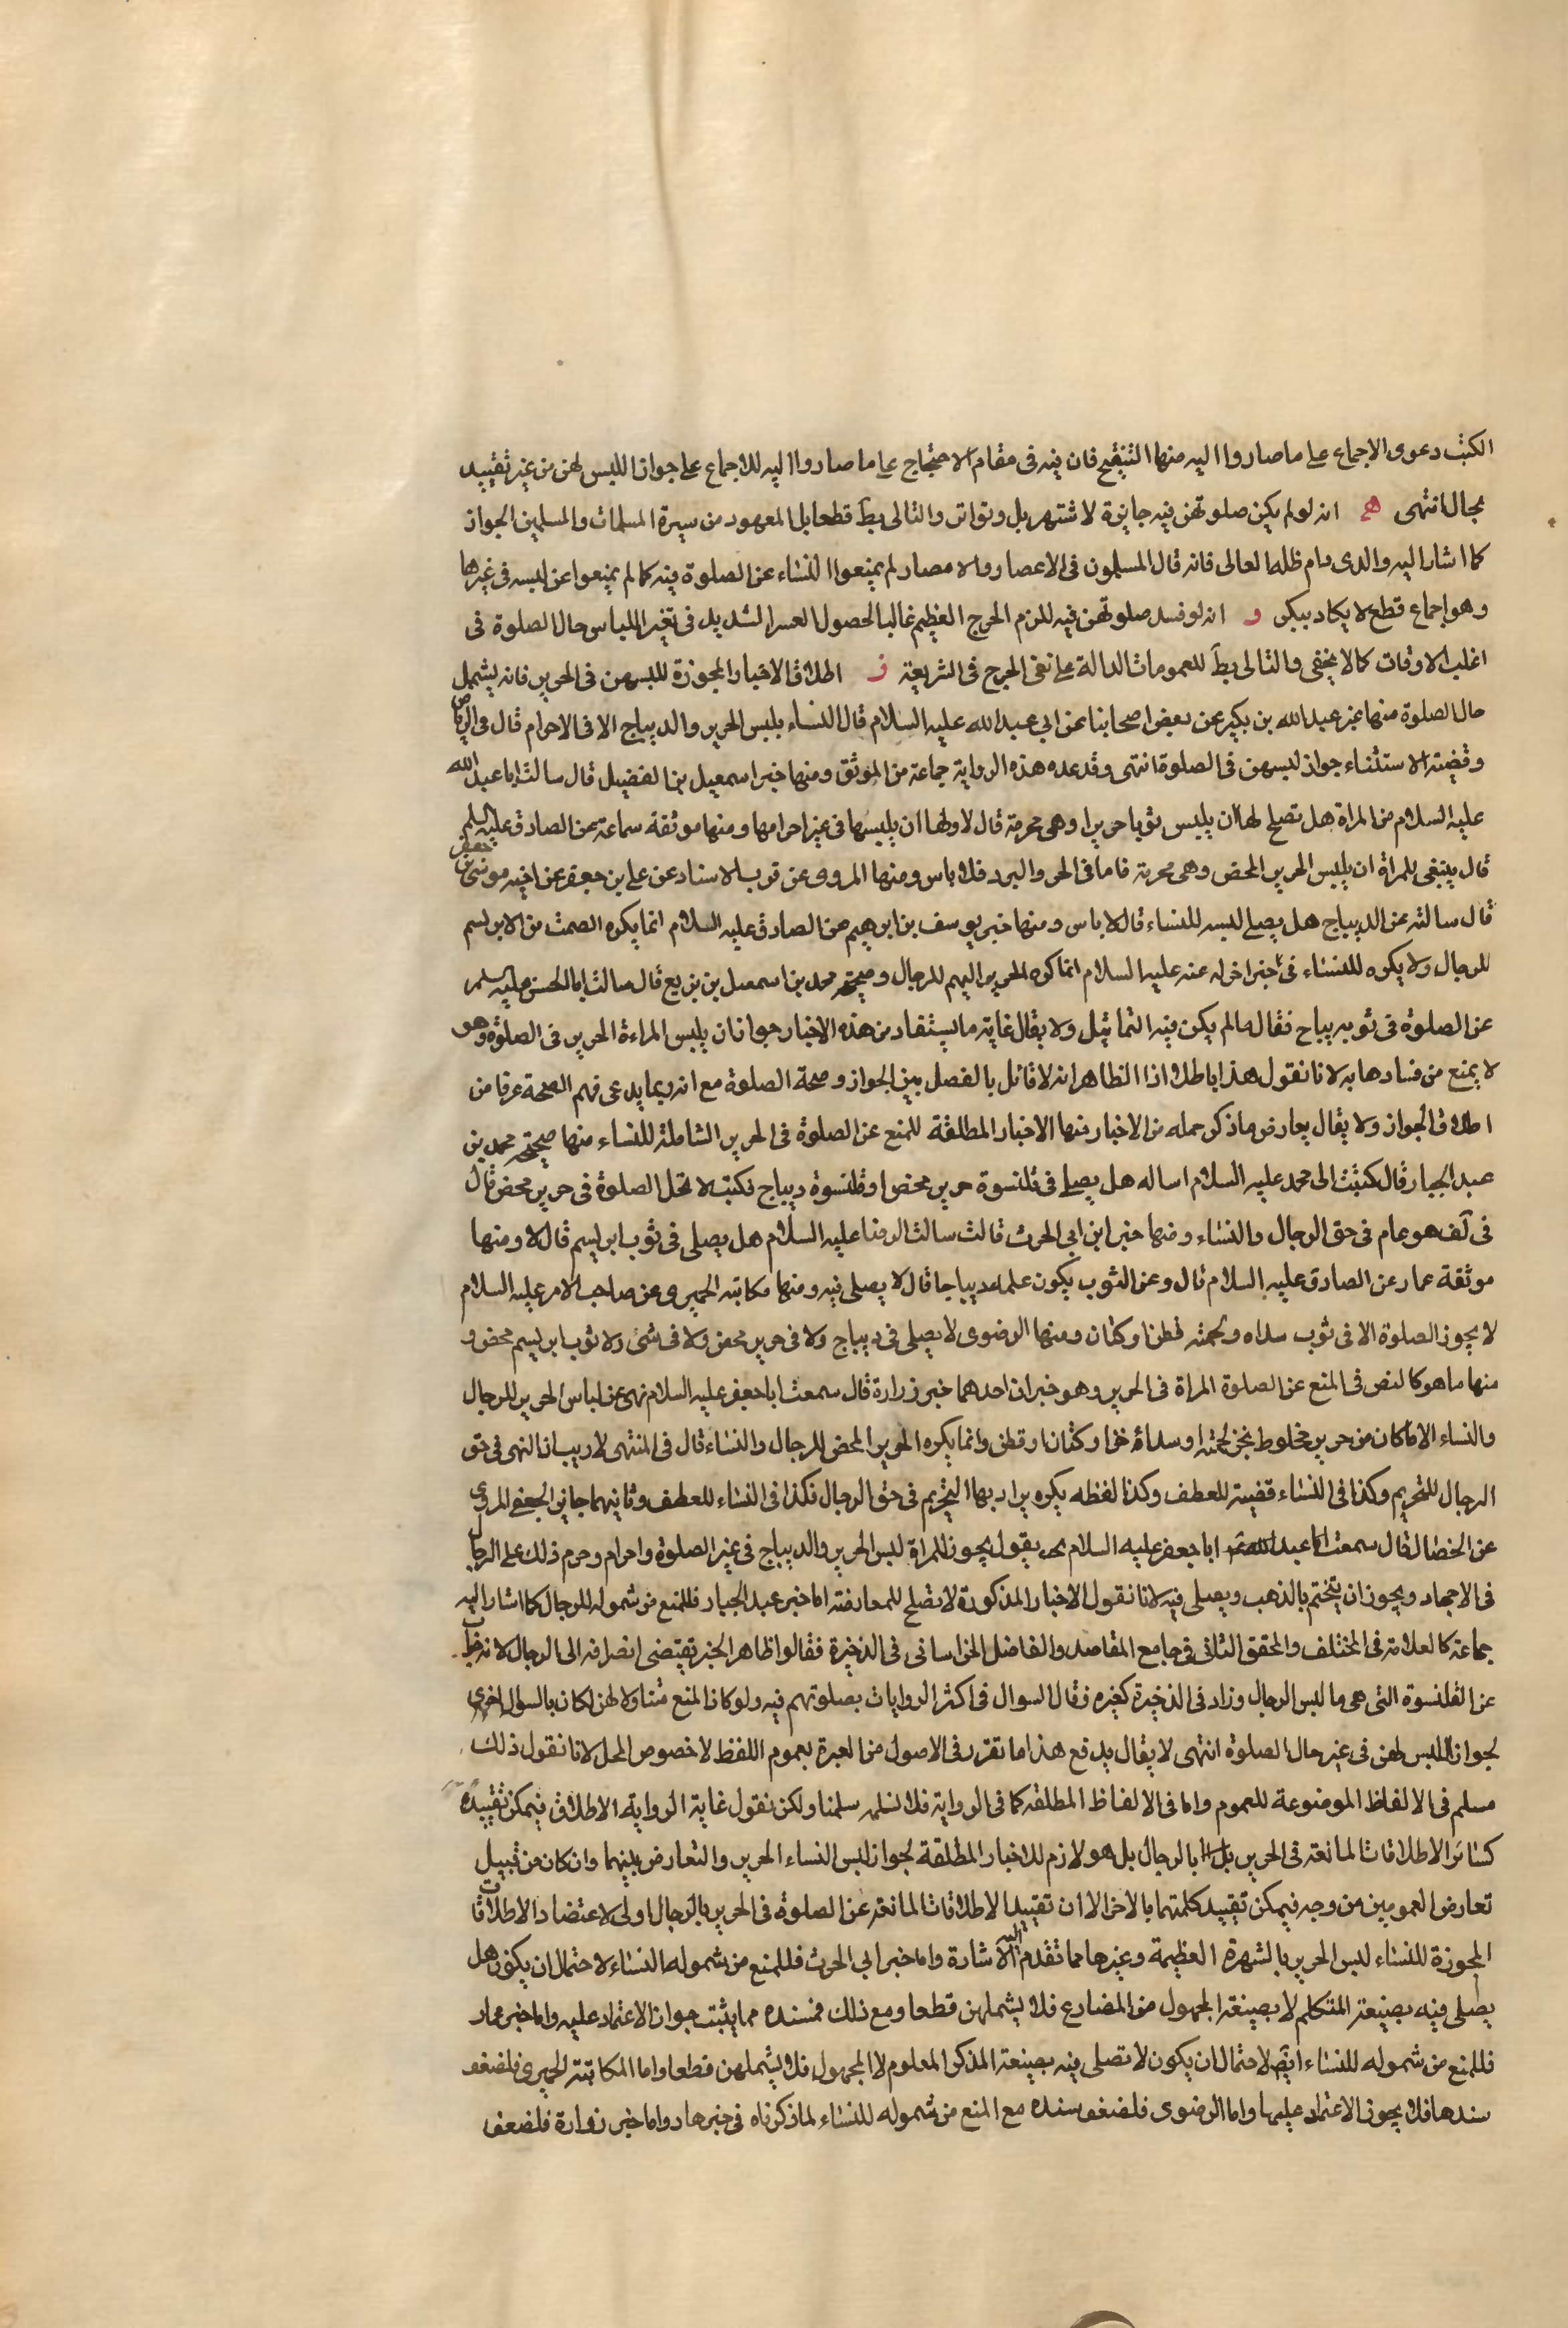 الكتب دعوى الاجماع على ما صاروا اليه منها التنقيح فان فيه فى مقام الاحتجاج على ما صاروا اليه للاجماع على جواز اللبس لهن من غير تقييد
بحال انتهى هـ انه لو لم يكن صلوتهن فيه جايزة لاشتهر بل وتواتر والتالى بط قطعا بل المعهود من سيرة المسلمات والمسلمين الجواز
كما اشار اليه والدى دام ظله العالى فانه قال المسلمون فى الاعصار والامصار لم يمنعوا النساء عن الصلوة فيه كما لم يمنعوا عن لبسه فى غيرها
وهو اجماع قطع لا يكاد ينكر و انه لو فسد صلوتهن فيه للزم الحرج العظيم غالبا لحصول العسر الشديد فى تغير اللباس حال الصلوة فى
اغلب الاوقات كما لا يخفى والتالى بط للعمومات الدالة على نفى الحرج فى الشريعة ز اطلاق الاخبار المجوزة للبسهن فى الحرير فانه يشمل
حال الصلوة منها خبر عبد الله بن بكير عن بعض اصحابنا عن ابي عبد الله عليه السلام قال النساء يلبس الحرير والديباج الا فى الاحرام قال فى الرياض
وقضية الاستثناء جواز لبسهن فى الصلوة انتهى وقد عده هذه الرواية جماعة من الموثق ومنها خبر اسمعيل بن الفضيل قال سالت ابا عبد الله
عليه السلام من المراة هل تصلح لها ان يلبس ثوبا حريرا وهى محرمة قال لا ولها ان يلبسها فى غير احرامها ومنها موثقة سماعة عن الصادق عليه السلم
قال ينبغى للمراة ان يلبس الحرير المحض وهى محرمة فاما فى الحر والبرد فلا باس ومنها المروى عن قرب الاسناد عن على بن جعفر عن اخيه موسى بن جعفر
قال سالته عن الديباج هل يصلح لبسه للنساء قال لا باس ومنها خبر يوسف بن ابرهيم عن الصادق عليه السلام انما يكره الصمت من الابريسم
للرجال ولا يكره للنساء فى خبر اخر له عنه عليه السلام انما كره الحرير البهم للرجال وصحيحة محمد بن اسمعيل بن بزيع قال سالت ابا الحسن عليه السلم
عن الصلوة فى ثوب ديباج فقال ما لم يكن فيه التماثيل ولا يقال غاية ما يستفاد من هذه الاخبار جواز ان يلبس المراءة الحرير فى الصلوة وهو
لا يمنع من فسادها به لانا نقول هذا باطل اذا الظاهر انه لا قائل بالفصل بين الجواز وصحة الصلوة مع انه ربما يدعى فهم الصحة عرفا من
اطلاق الجواز ولا يقال يعارض ما ذكر جمله من الاخبار منها الاخبار المطلقة للمنع عن الصلوة فى الحرير الشاملة للنساء منها صحيحة محمد بن
عبد الجبار قال كتبت الى محمد عليه السلام اساله هل يصلى فى قلنسوة حرير محض او قلنسوة ديباج فكتب لا تحل الصلوة فى حرير محض قال
فى لف هو عام فى حق الرجال والنساء ومنها خبر ابن ابى الحرث قالت سالت الرضا عليه السلام هل يصلى فى ثوب ابريسم قال لا ومنها
موثقة عمار عن الصادق عليه السلام قال وعن الثوب يكون علمه ديباجا قال لا يصلى فيه ومنها مكاتبه الحميرى عن صاحب الامر عليه السلام
لا يجوز الصلوة الا فى ثوب سداه ولحمته قطن او كتان ومنها الرضوى لا يصلى فى ديباج ولا فى حرير محض ولا فى شئ ولا ثوب ابريسم محض و
منها ما هو كالنص فى المنع عن الصلوة المراة فى الحرير وهو خبران احدهما خبر زرارة قال سمعت ابا جعفر عليه السلام نهى عن لباس الحرير للرجال
والنساء الا ما كان من حرير مخلوط بخز لحمته او سداه خز او كتان او قطن وانما يكره الحرير المحض للرجال والنساء قال فى المنتهى لا ريب ان النهى فى حق
الرجال للتحريم وكذا فى النساء قضية للعطف وكذا لفظه يكره يراد بها التحريم فى حق الرجال فكذا فى النساء للعطف وثانيهما جابر الجعفى المروى
عن الخصال قال سمعت ابا جعفر عليه السلام يقول يجوز للمراة لبس الحرير والديباج فى غير الصلوة واحرام وحرم ذلك على الرجال
فى الاجهاد ويجوز ان يتختم بالذهب ويصلى فيه لانا نقول الاخبار المذكورة لا تصلح للمعارضة اما خبر عبد الجبار فللمنع من شموله للرجال كما اشار اليه
جماعة كالعلامة فى المختلف والمحقق الثانى فى جامع المقاصد والفاضل الخراسانى فى الذخيرة فقالوا ظاهر الخبر تقتضى انصرافه الى الرجال لانه
عن القلنسوة التى هى ما لبس الرجال وزاد فى الذخيرة كغيره فقال السوال فى اكثر الروايات بصلوتهم فيه ولو كان المنع متناولا لهن لكان بالسوال احرى
لجواز اللبس لهن فى غير حال الصلوة انتهى لا يقال يدفع هذا ما تقرر فى الاصول من العبرة بعموم اللفظ لا خصوص المحل لانا نقول ذلك
مسلم فى الالفاظ الموضوعة للعموم واما فى الالفاظ المطلقه كما فى الرواية فلا نسلم سلمنا ولكن نقول غاية الرواية الاطلاق فيمكن تقييده
كسائر الاطلاقات المانعة فى الحرير بالرجال بل هو لازم للاخبار المطلقة لجواز لبس النساء الحرير والتعارض بينهما وان كان من قبيل
تعارض العمومين من وجه فيمكن تقييد كلمتهما بالاخر الا ان تقييد الاطلاقات المانعة عن الصلوة فى الحرير بالرجال اولى لاعتضاد الاطلاقات
المجوزة للنساء لبس الحرير بالشهرة العظيمة وغيرها مما تقدم اليه الاشارة واما خبر ابي الحرث فللمنع من شموله النساء لاحتمال ان يكون هل
يصلى فيه بصيغة المتكلم لا بصيغة المجهول من المضارع فلا يشملهن قطعا ومع ذلك فمسنده مما يثبت جواز الاعتماد عليه واما خبر عمار
فللمنع من شموله للنساء ايض لاحتمال ان يكون لا تصلى فيه بصيغة المذكر المعلوم لا المجهول فلا يشملهن قطعا واما المكاتبة الحميرى فلضعف
سندها فلا يجوز الاعتماد عليها واما الرضوى فلضعف سنده مع المنع من شموله للنساء لما ذكرناه فى خبر هار واما خبر زرارة فلضعف